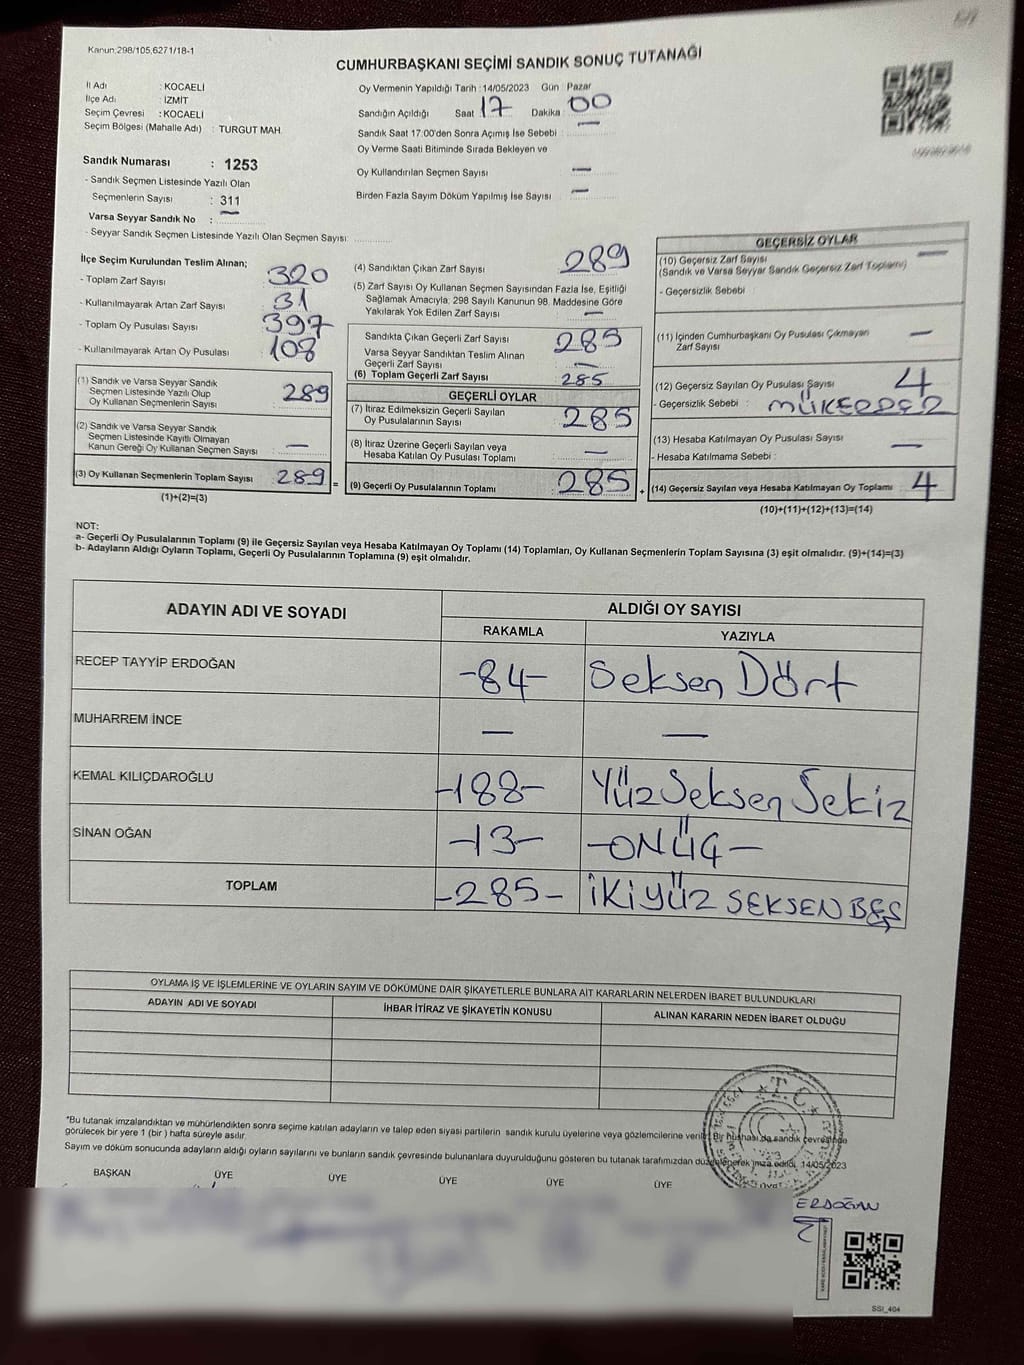 Kanun:298/105,6271/18-1
CUMHURBAŞKANI SEÇİMİ SANDIK SONUÇ TUTANAĞI
İl Adı : KOCAELİ
İlçe Adı : İZMİT
Seçim Çevresi : KOCAELİ
Seçim Bölgesi (Mahalle Adı) : TURGUT MAH.
Sandık Numarası : 1253
- Sandık Seçmen Listesinde Yazılı Olan
Seçmenlerin Sayısı : 311
Varsa Seyyar Sandık No : —
- Seyyar Sandık Seçmen Listesinde Yazılı Olan Seçmen Sayısı:
Oy Vermenin Yapıldığı Tarih : 14/05/2023 Gün Pazar
Sandığın Açıldığı Saat 17 Dakika 00
Sandık Saat 17:00'den Sonra Açımış İse Sebebi : —
Oy Verme Saati Bitiminde Sırada Bekleyen ve
Oy Kullandırılan Seçmen Sayısı —
Birden Fazla Sayım Döküm Yapılmış İse Sayısı —
İlçe Seçim Kurulundan Teslim Alınan;
- Toplam Zarf Sayısı 320
- Kullanılmayarak Artan Zarf Sayısı 31
- Toplam Oy Pusulası Sayısı 397
- Kullanılmayarak Artan Oy Pusulası 108
(1) Sandık ve Varsa Seyyar Sandık
Seçmen Listesinde Yazılı Olup
Oy Kullanan Seçmenlerin Sayısı 289
(2) Sandık ve Varsa Seyyar Sandık
Seçmen Listesinde Kayıtlı Olmayan
Kanun Gereği Oy Kullanan Seçmen Sayısı —
(3) Oy Kullanan Seçmenlerin Toplam Sayısı 289 =
(1)+(2)=(3)
(4) Sandıktan Çıkan Zarf Sayısı 289
(5) Zarf Sayısı Oy Kullanan Seçmen Sayısından Fazla İse, Eşitliği
Sağlamak Amacıyla; 298 Sayılı Kanunun 98. Maddesine Göre
Yakılarak Yok Edilen Zarf Sayısı —
Sandıkta Çıkan Geçerli Zarf Sayısı 285
Varsa Seyyar Sandıktan Teslim Alınan
Geçerli Zarf Sayısı —
(6) Toplam Geçerli Zarf Sayısı 285
GEÇERLİ OYLAR
(7) İtiraz Edilmeksizin Geçerli Sayılan
Oy Pusulalarının Sayısı 285
(8) İtiraz Üzerine Geçerli Sayılan veya
Hesaba Katılan Oy Pusulası Toplamı —
(9) Geçerli Oy Pusulalarının Toplamı 285 +
GEÇERSİZ OYLAR
(10) Geçersiz Zarf Sayısı —
(Sandık ve Varsa Seyyar Sandık Geçersiz Zarf Toplamı)
- Geçersizlik Sebebi :
(11) İçinden Cumhurbaşkanı Oy Pusulası Çıkmayan —
Zarf Sayısı
(12) Geçersiz Sayılan Oy Pusulası Sayısı 4
- Geçersizlik Sebebi : MÜKERRER
(13) Hesaba Katılmayan Oy Pusulası Sayısı —
- Hesaba Katılmama Sebebi :
(14) Geçersiz Sayılan veya Hesaba Katılmayan Oy Toplamı 4
(10)+(11)+(12)+(13)=(14)
NOT:
a- Geçerli Oy Pusulalarının Toplamı (9) ile Geçersiz Sayılan veya Hesaba Katılmayan Oy Toplamı (14) Toplamları, Oy Kullanan Seçmenlerin Toplam Sayısına (3) eşit olmalıdır. (9)+(14)=(3)
b- Adayların Aldığı Oyların Toplamı, Geçerli Oy Pusulalarının Toplamına (9) eşit olmalıdır.
ADAYIN ADI VE SOYADI
ALDIĞI OY SAYISI
RAKAMLA YAZIYLA
RECEP TAYYİP ERDOĞAN -84- Seksen Dört
MUHARREM İNCE — —
KEMAL KILIÇDAROĞLU -188- Yüz Seksen Sekiz
SİNAN OĞAN -13- -ONÜÇ-
TOPLAM -285- İKİYÜZ SEKSEN BEŞ
OYLAMA İŞ VE İŞLEMLERİNE VE OYLARIN SAYIM VE DÖKÜMÜNE DAİR ŞİKAYETLERLE BUNLARA AİT KARARLARIN NELERDEN İBARET BULUNDUKLARI
ADAYIN ADI VE SOYADI İHBAR İTİRAZ VE ŞİKAYETİN KONUSU ALINAN KARARIN NEDEN İBARET OLDUĞU
*Bu tutanak imzalandıktan ve mühürlendikten sonra seçime katılan adayların ve talep eden siyasi partilerin sandık kurulu üyelerine veya gözlemcilerine verilir. Bir nüshası da sandık çevresinde
görülecek bir yere 1 (bir ) hafta süreyle asılır.
Sayım ve döküm sonucunda adayların aldığı oyların sayılarını ve bunların sandık çevresinde bulunanlara duyurulduğunu gösteren bu tutanak tarafımızdan düzenlenerek imza edildi. 14/05/2023
T.C.
BAŞKAN ÜYE ÜYE ÜYE ÜYE ÜYE
ERDOĞAN
SSI_404